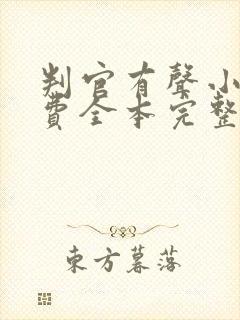 判官有聲小
費全本完整
東方暮落